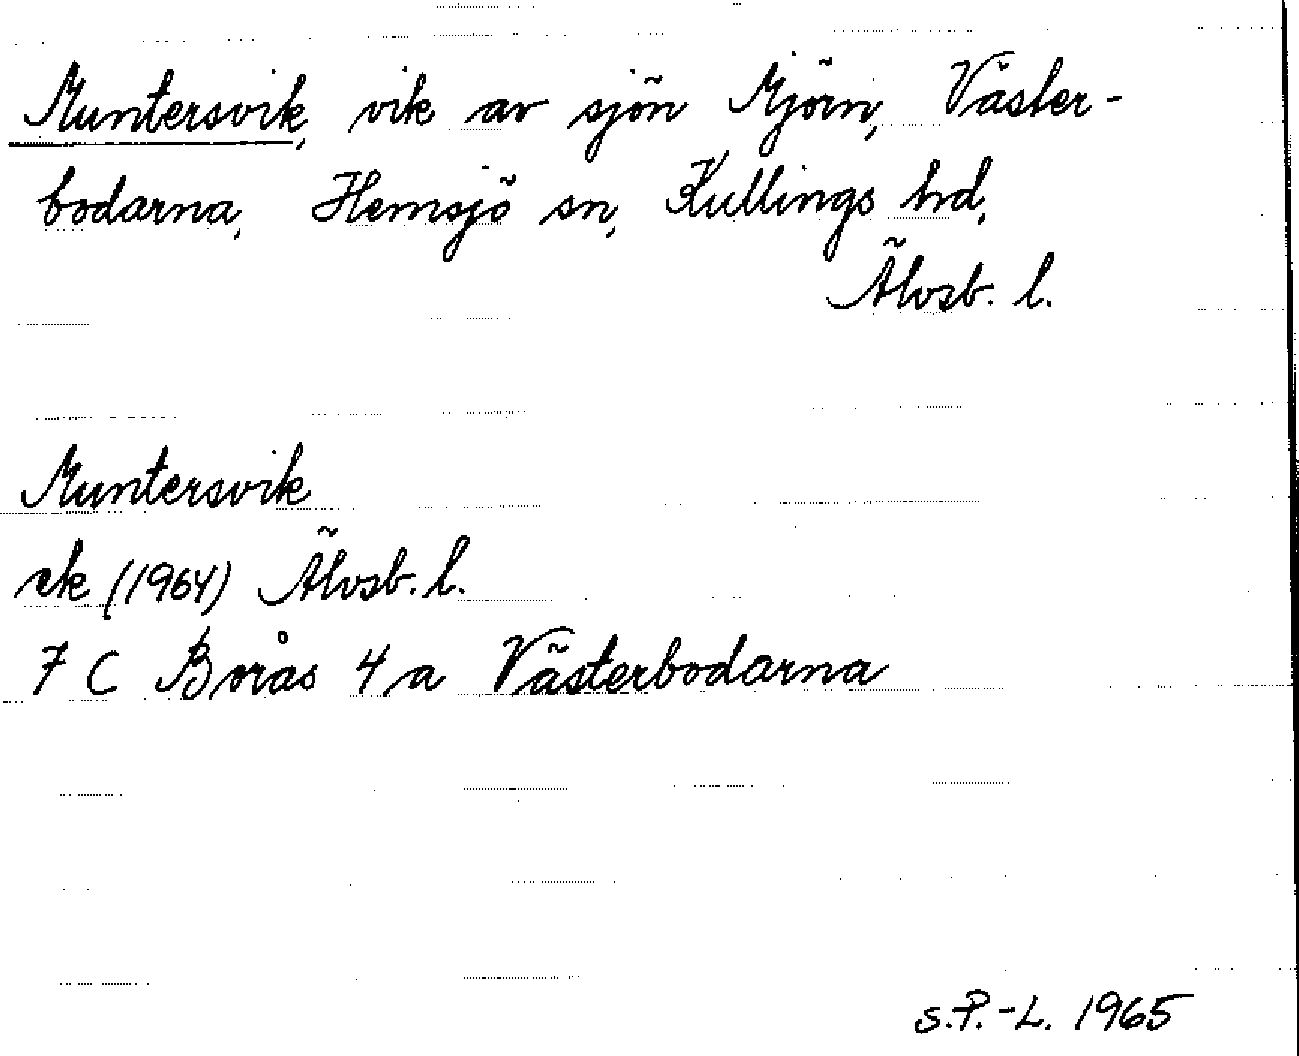 Muntersvik, vik av sjön Mjörn, Väster-
bodarna, Hemsjö sn, Kullings hd,
Älvsb. l.
Muntersvik
ek (1964) Älvsb. l.
7 C Borås 4 a Västerbodarna
S.P.-L. 1965